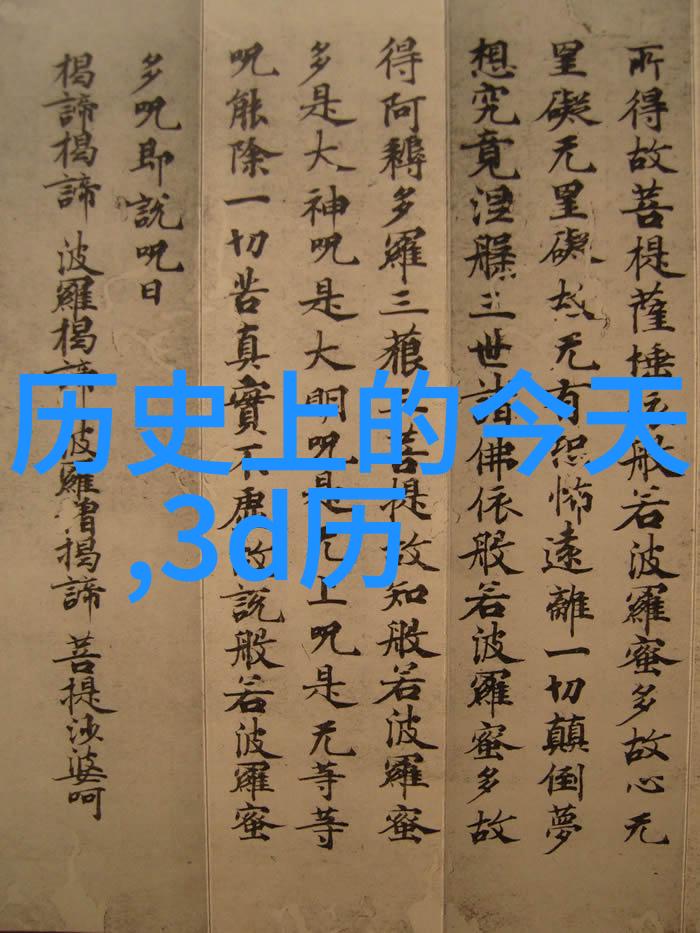 所得故菩提薩埵依般若波羅蜜多故心无
罣礙无罣礙故无有恐怖遠離一切顛倒夢
想究竟涅槃三世諸佛依般若波羅蜜多故
得阿耨多羅三藐三菩提故知般若波羅蜜
多是大神呪是大明呪是无上呪是无等等
呪能除一切苦真實不虛故說般若波羅蜜
多呪即說呪曰
揭諦揭諦 波羅揭諦 波羅僧揭諦 菩提沙婆呵
历史上的今天
,3d历